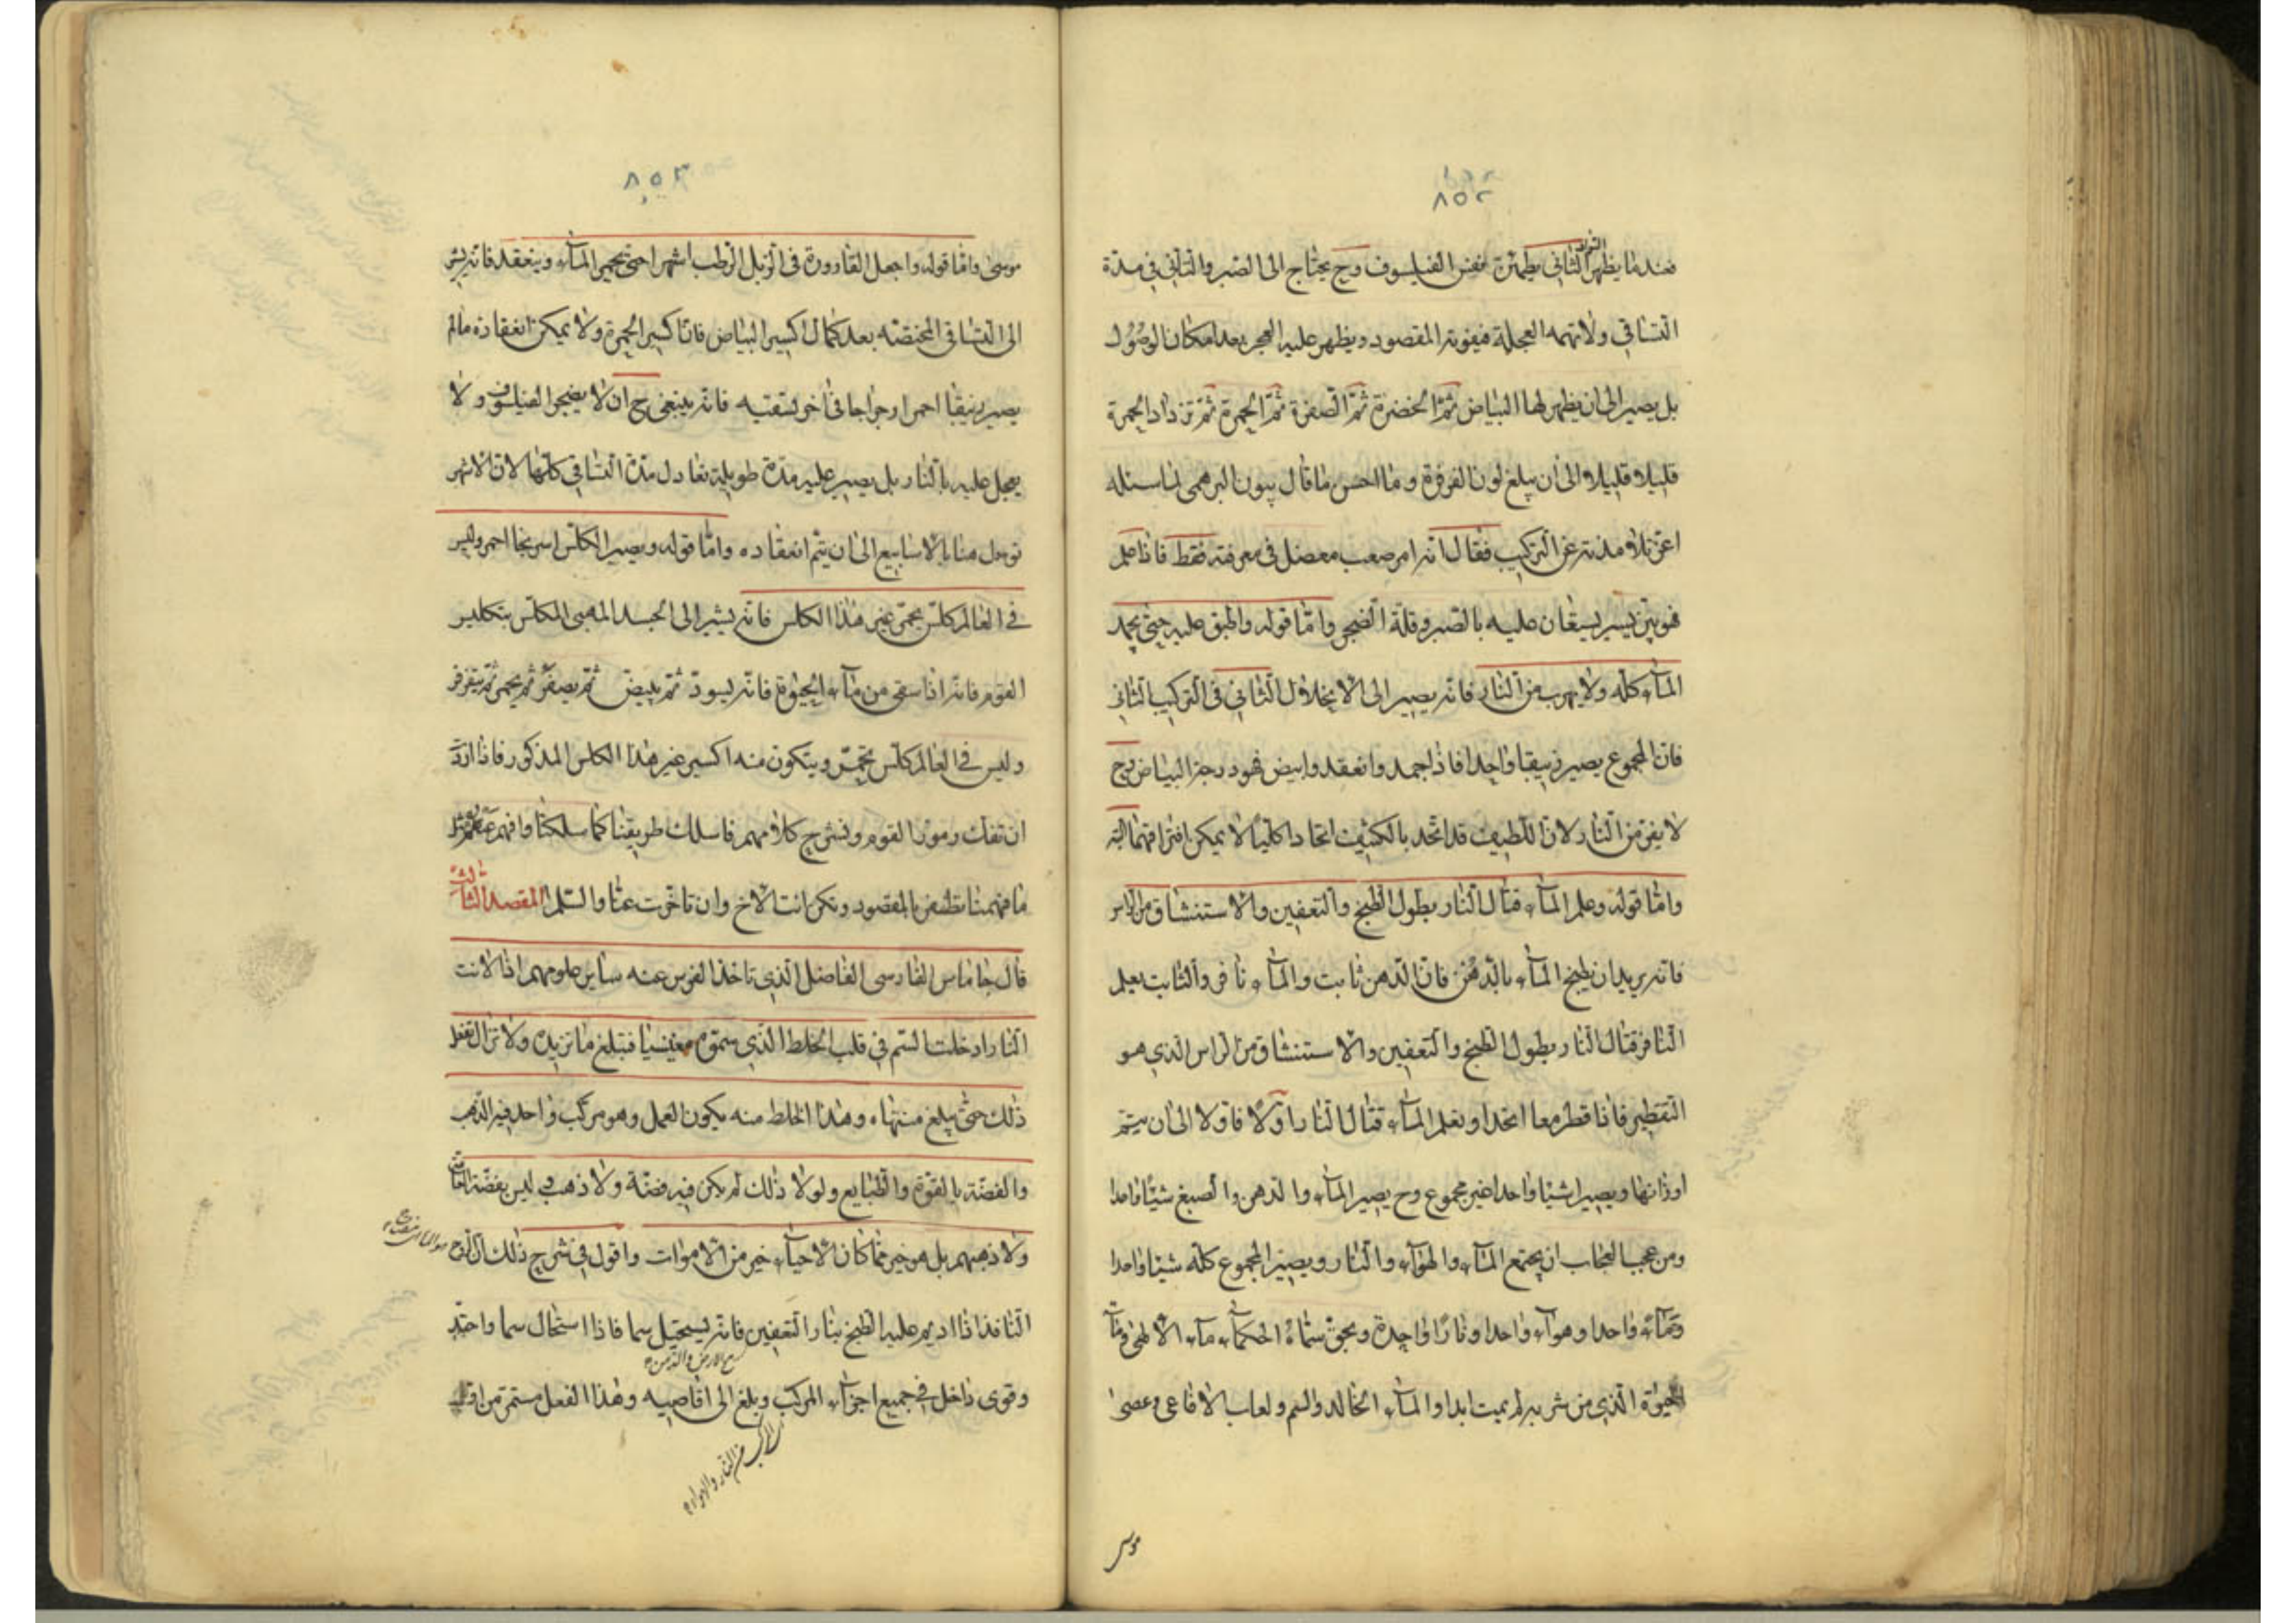 ٨٥٢
فعندما يظهر السواد الثاني يطمئن نفس الفيلسوف وح يحتاج الى الصبر والتأني في مدة
التساقي ولا تهمه العجلة فيفوته المقصود ويظهر عليه العجز بعد امكان الوصول
بل يصير الى ان يظهر لها البياض ثم الخضرة ثم الصفرة ثم الحمرة ثم تزداد الحمرة
قليلا قليلا الى ان يبلغ لون الفرفرة وما احسن ما قال بيون البرهمي لما سئله
اعز تلامذته عن التركيب فقال انه امر صعب معضل في معرفته فقط فاذا علم
فهو هين يسير يستعان عليه بالصبر وقلة الضجر واما قوله واطبق عليه حتى يجمد
الماء كله ولا يهرب من النار فانه يصير الى الانحلال الثاني في التركيب الثاني
فان المجموع يصير زيبقا واحدا فاذا جمد وانعقد وابيض فهو درجة البياض وح
لا يفر من النار لان اللطيف قد اتحد بالكثيف اتحادا كليا لا يمكن افتراقهما البتة
واما قوله وعلم الماء قتال النار بطول الطبخ والتعفين والاستنشاق من الراس
فانه يريد ان يطبخ الماء بالدهن فان الدهن ثابت والماء نافر والثابت يعلم
النافر قتال النار بطول الطبخ والتعفين والاستنشاق من الراس الذي هو
التقطير فاذا قطر معا اتحدا وتعلم الماء قتال النار اولا فاولا الى ان يتم
اوزانها ويصيرا شيئا واحدا غير مجموع وح يصير الماء والدهن والصبغ شيئا واحدا
ومن عجب العجاب ان يجتمع الماء والهواء والنار ويصير المجموع كله شيئا واحدا
وماء واحدا وهواء واحدا ونارا واحدة وبحق سماه الحكماء ماء الالهي وماء
الحيوة الذي من شربه لم يميت ابدا والماء الخالد والسم ولعاب الافاعي وعصى
موسى
٨٥٣
موسى واما قوله واجعل القارورة في الزبل الرطب اشهرا حتى يحمي الماء وينعقد فانه يشير
الى التساقي المختصة بعد كمال اكسير البياض فان اكسير الحمرة ولا يمكن انعقاده مالم
يصير زيبقا احمر ارجراجا في آخر تسقيته فانه ينبغي ح ان لا يضجر الفيلسوف ولا
يعجل عليه بالنار بل يصبر عليه مدة طويلة تعادل مدة التساقي كلها لان الاشهر
توصل هنا بالاسابيع الى ان يتم انعقاده واما قوله ويصير الكلس اسرنجا احمر وليس
في العالم كلس يحمر غير هذا الكلس فانه يشير الى الجسد المهبى المكلس بتكليس
القوم فانه اذا سقى من ماء الحيوة فانه يسود ثم يبيض ثم يصفر ثم يحمر ثم يتفرفر
وليس في العالم كلس يحمر ويتكون منه اكسير غير هذا الكلس المذكور فاذا اردت
ان تفك رموز القوم وتشرح كلامهم فاسلك طريقنا كما سلكنا وافهم عنهم مثل
ما فهمنا تظفر بالمقصود وتكن انت الاخ وان تأخرت عنا والسلم المقصد الثالث
قال جاماس الفارسي الفاضل الذي تاخذ الفرس عنه ساير علومهم اذا لانت
النار ادخلت السم في قلب الخلط الذي سموه مغنيسيا فتبلغ ما تريد ولا تزال تفعل
ذلك حتى يبلغ منتهاه وهذا الخلط منه يكون العمل وهو مركب واحد فيه الذهب
والفضة بالقوة والطبايع ولولا ذلك لم يكن فيه فضة ولا ذهب ليس بفضة العامة
ولا ذهبهم بل هو خير مما كان الاحياء خير من الاموات واقول في شرح ذلك ان الروح
النافذ اذا اديم عليه الطبخ بنار التعفين فانه يستحيل سما فاذا استحال سما واحتد
وقوى داخل في جميع اجزاء المركب وبلغ الى اقاصيه وهذا الفعل مستمر من اول